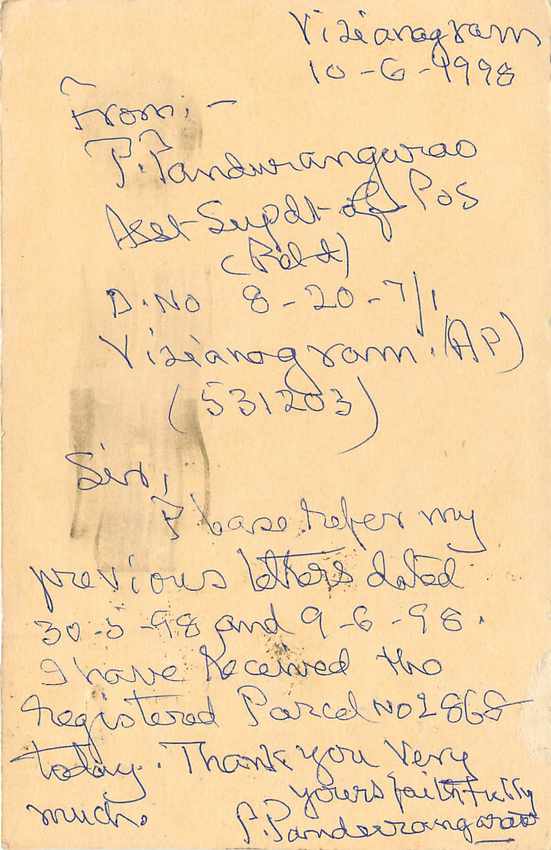 Vizianagram
10-6-1998
From:-
P. Pandurangarao
Asst-Supdt-of Pos
(Retd)
D.No 8-20-7/1
Vizianagram. (AP)
(531203)
Sir,
Please refer my
previous letters dated
30-5-98 and 9-6-98.
I have received the
registered Parcel No 2868
today. Thank you Very
much.
yours faithfully
P. Pandurangarao